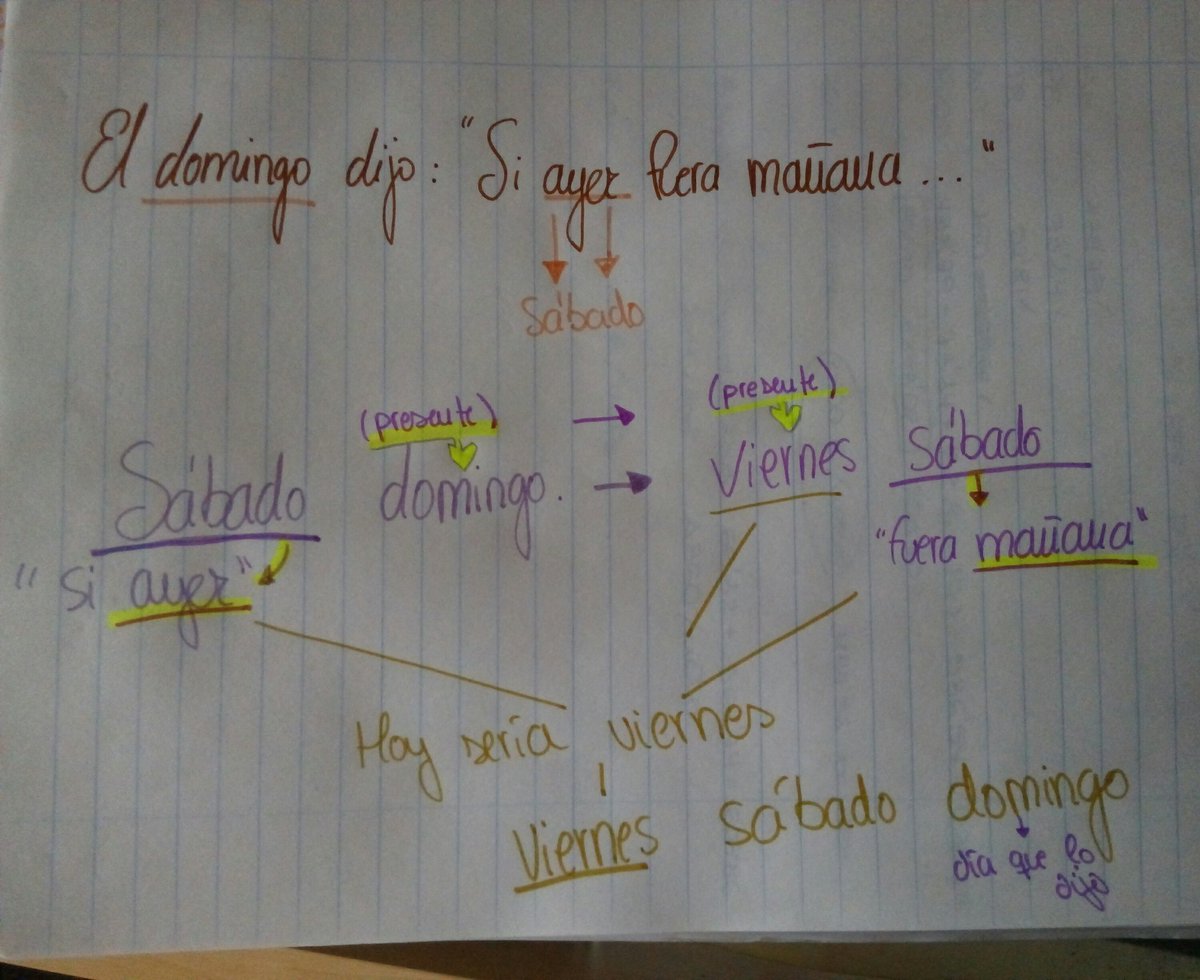 El domingo dijo: "Si ayer fuera mañana ..."
Sábado
(presente) (presente)
Sábado domingo. Viernes Sábado
"si ayer" "fuera mañana"
Hoy sería viernes
Viernes sábado domingo
día que lo
dijo